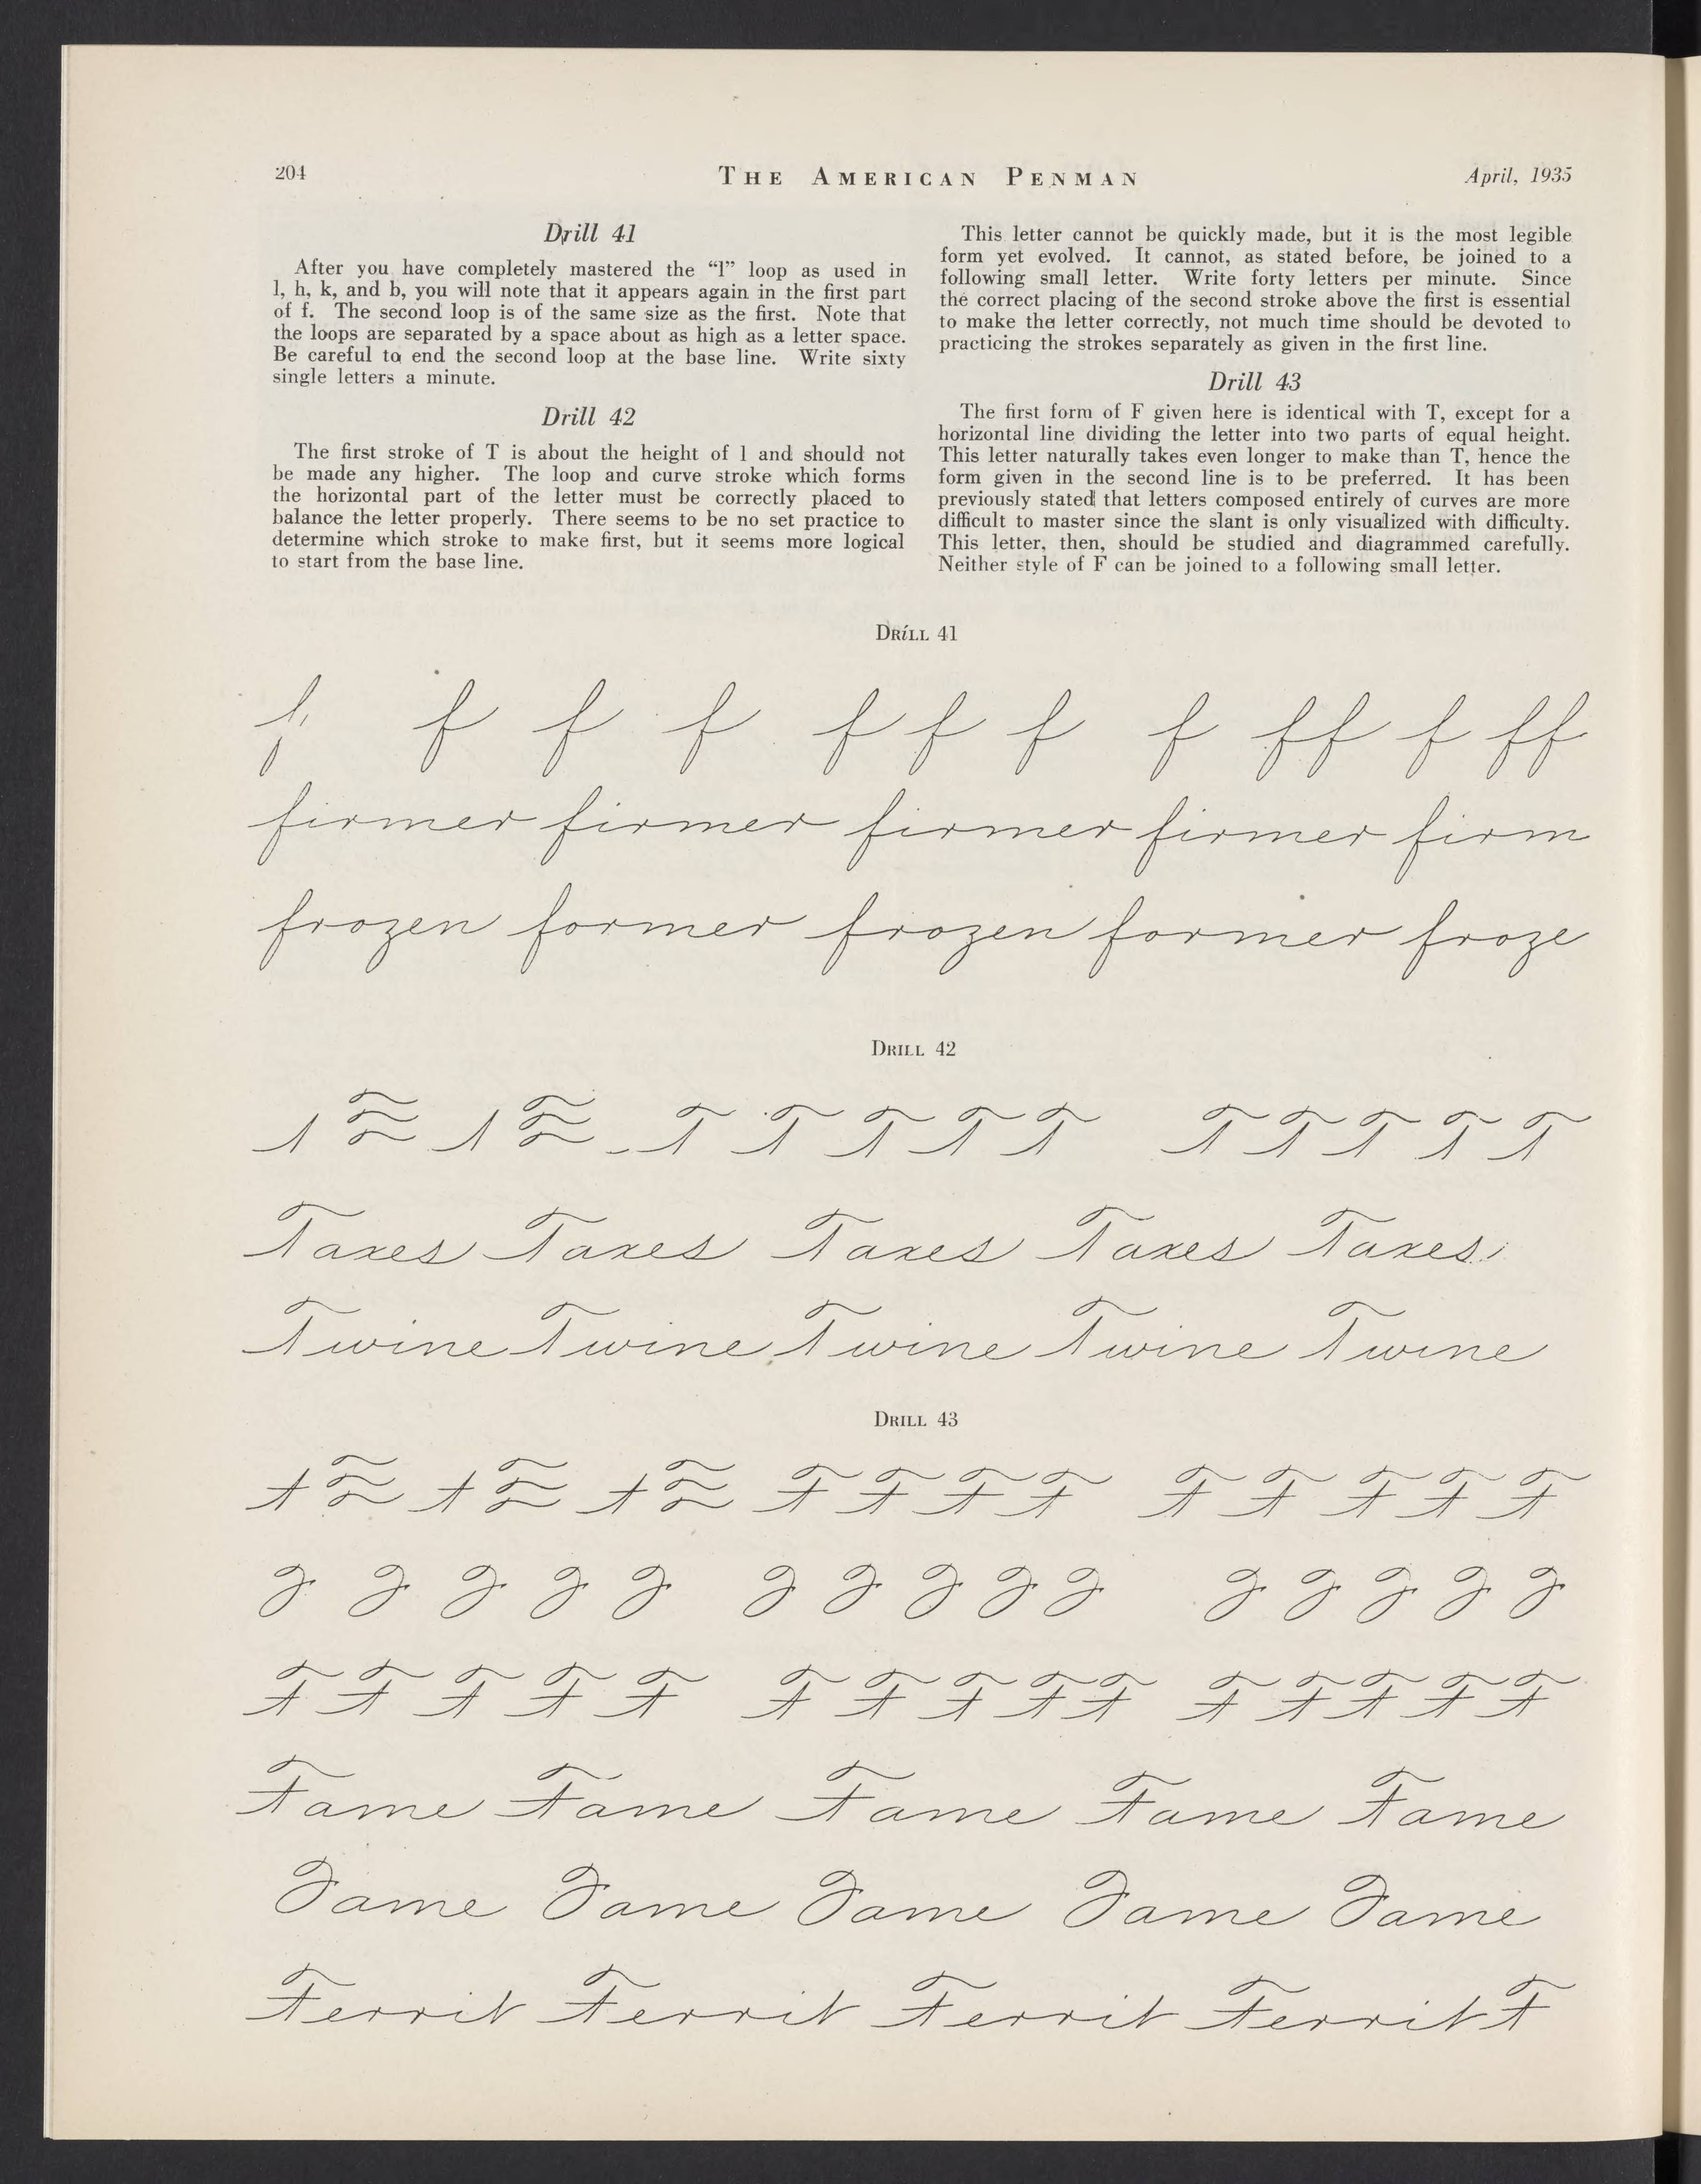 204
THE AMERICAN PENMAN
April, 1935
Drill 41
After you have completely mastered the “l” loop as used in
l, h, k, and b, you will note that it appears again in the first part
of f. The second loop is of the same size as the first. Note that
the loops are separated by a space about as high as a letter space.
Be careful to end the second loop at the base line. Write sixty
single letters a minute.
Drill 42
The first stroke of T is about the height of l and should not
be made any higher. The loop and curve stroke which forms
the horizontal part of the letter must be correctly placed to
balance the letter properly. There seems to be no set practice to
determine which stroke to make first, but it seems more logical
to start from the base line.
This letter cannot be quickly made, but it is the most legible
form yet evolved. It cannot, as stated before, be joined to a
following small letter. Write forty letters per minute. Since
the correct placing of the second stroke above the first is essential
to make the letter correctly, not much time should be devoted to
practicing the strokes separately as given in the first line.
Drill 43
The first form of F given here is identical with T, except for a
horizontal line dividing the letter into two parts of equal height.
This letter naturally takes even longer to make than T, hence the
form given in the second line is to be preferred. It has been
previously stated that letters composed entirely of curves are more
difficult to master since the slant is only visualized with difficulty.
This letter, then, should be studied and diagrammed carefully.
Neither style of F can be joined to a following small letter.
DRILL 41
f f f f f f f ff f ff
firmer firmer firmer firmer firm
frozen former frozen former froze
DRILL 42
T T T T T T T T T T
Taxes Taxes Taxes Taxes Taxes
Twine Twine Twine Twine Twine
DRILL 43
F F F F F F F F F
F F F F F F F F F F F F F F F
F F F F F F F F F F F F F F F
Fame Fame Fame Fame Fame
Fame Fame Fame Fame Fame
Ferrit Ferrit Ferrit Ferrit F